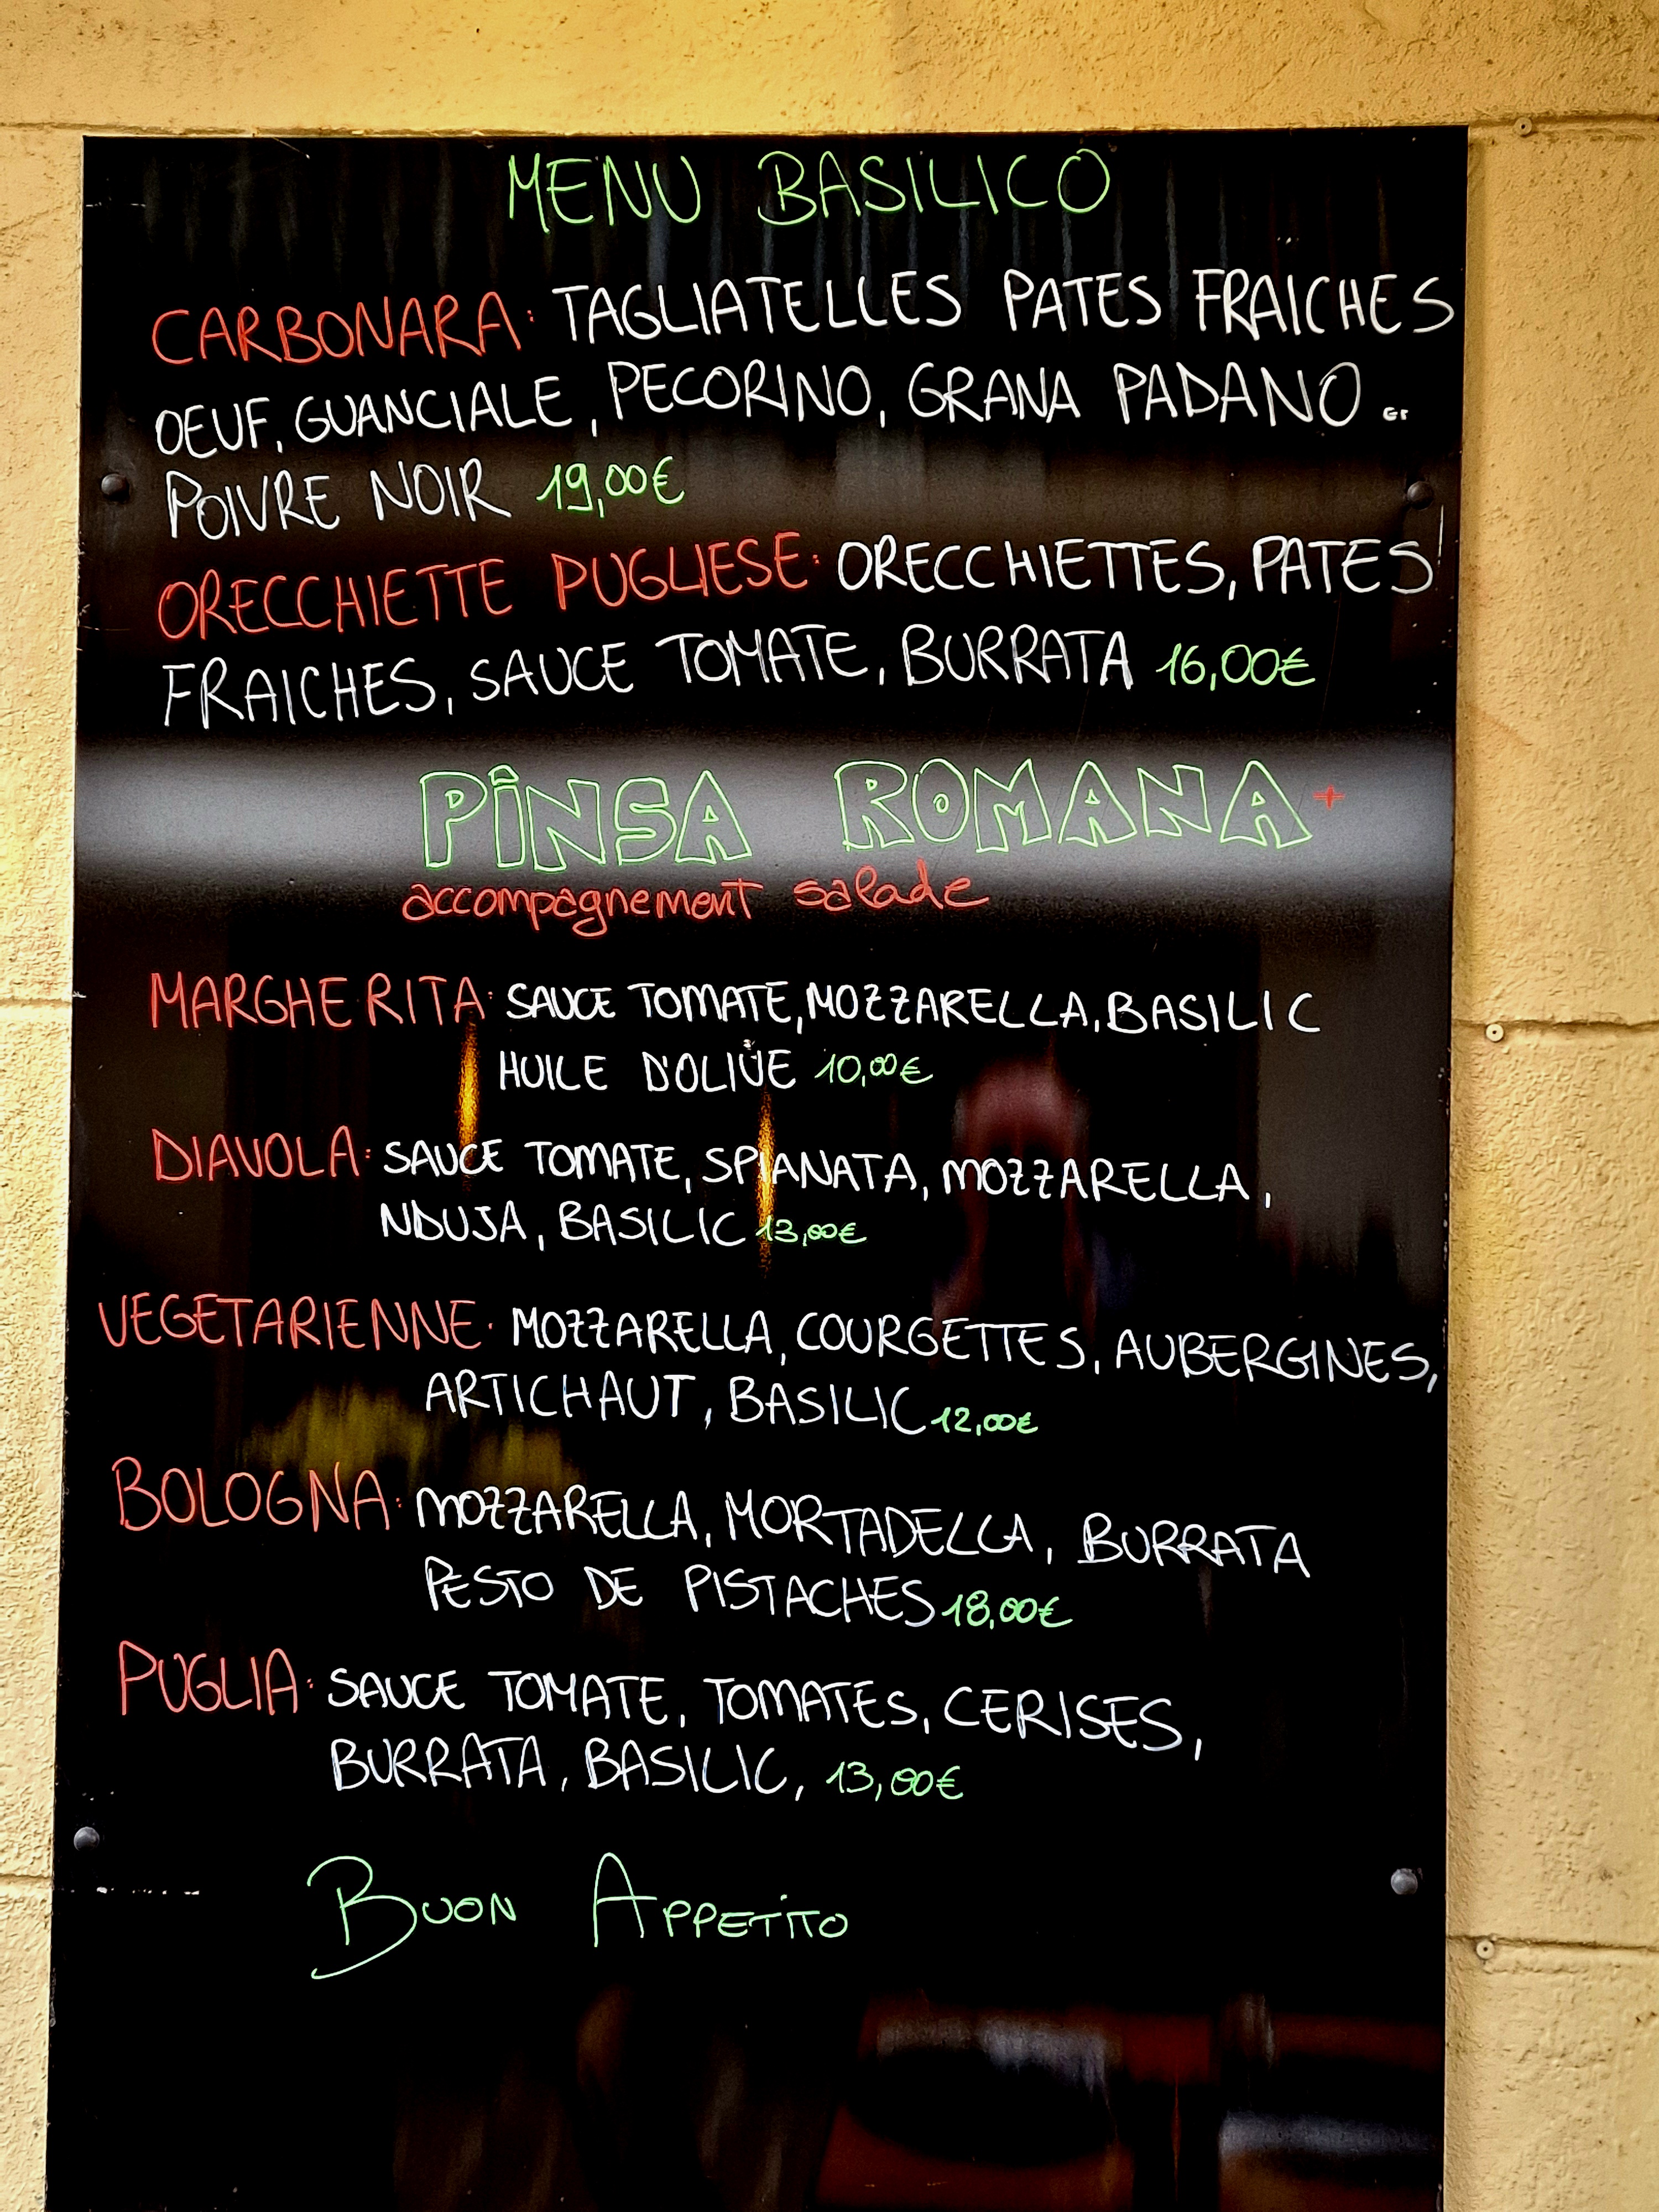 MENU BASILICO
CARBONARA: TAGLIATELLES PATES FRAICHES
OEUF, GUANCIALE, PECORINO, GRANA PADANO ET
POIVRE NOIR 19,00€
ORECCHIETTE PUGLIESE: ORECCHIETTES, PATES
FRAICHES, SAUCE TOMATE, BURRATA 16,00€
PINSA ROMANA +
accompagnement salade
MARGHERITA: SAUCE TOMATE, MOZZARELLA, BASILIC
HUILE D'OLIVE 10,00€
DIAVOLA: SAUCE TOMATE, SPIANATA, MOZZARELLA,
NDUJA, BASILIC 13,00€
VEGETARIENNE: MOZZARELLA, COURGETTES, AUBERGINES,
ARTICHAUT, BASILIC 12,00€
BOLOGNA: MOZZARELLA, MORTADELLA, BURRATA
PESTO DE PISTACHES 18,00€
PUGLIA: SAUCE TOMATE, TOMATES, CERISES,
BURRATA, BASILIC, 13,00€
BUON APPETITO